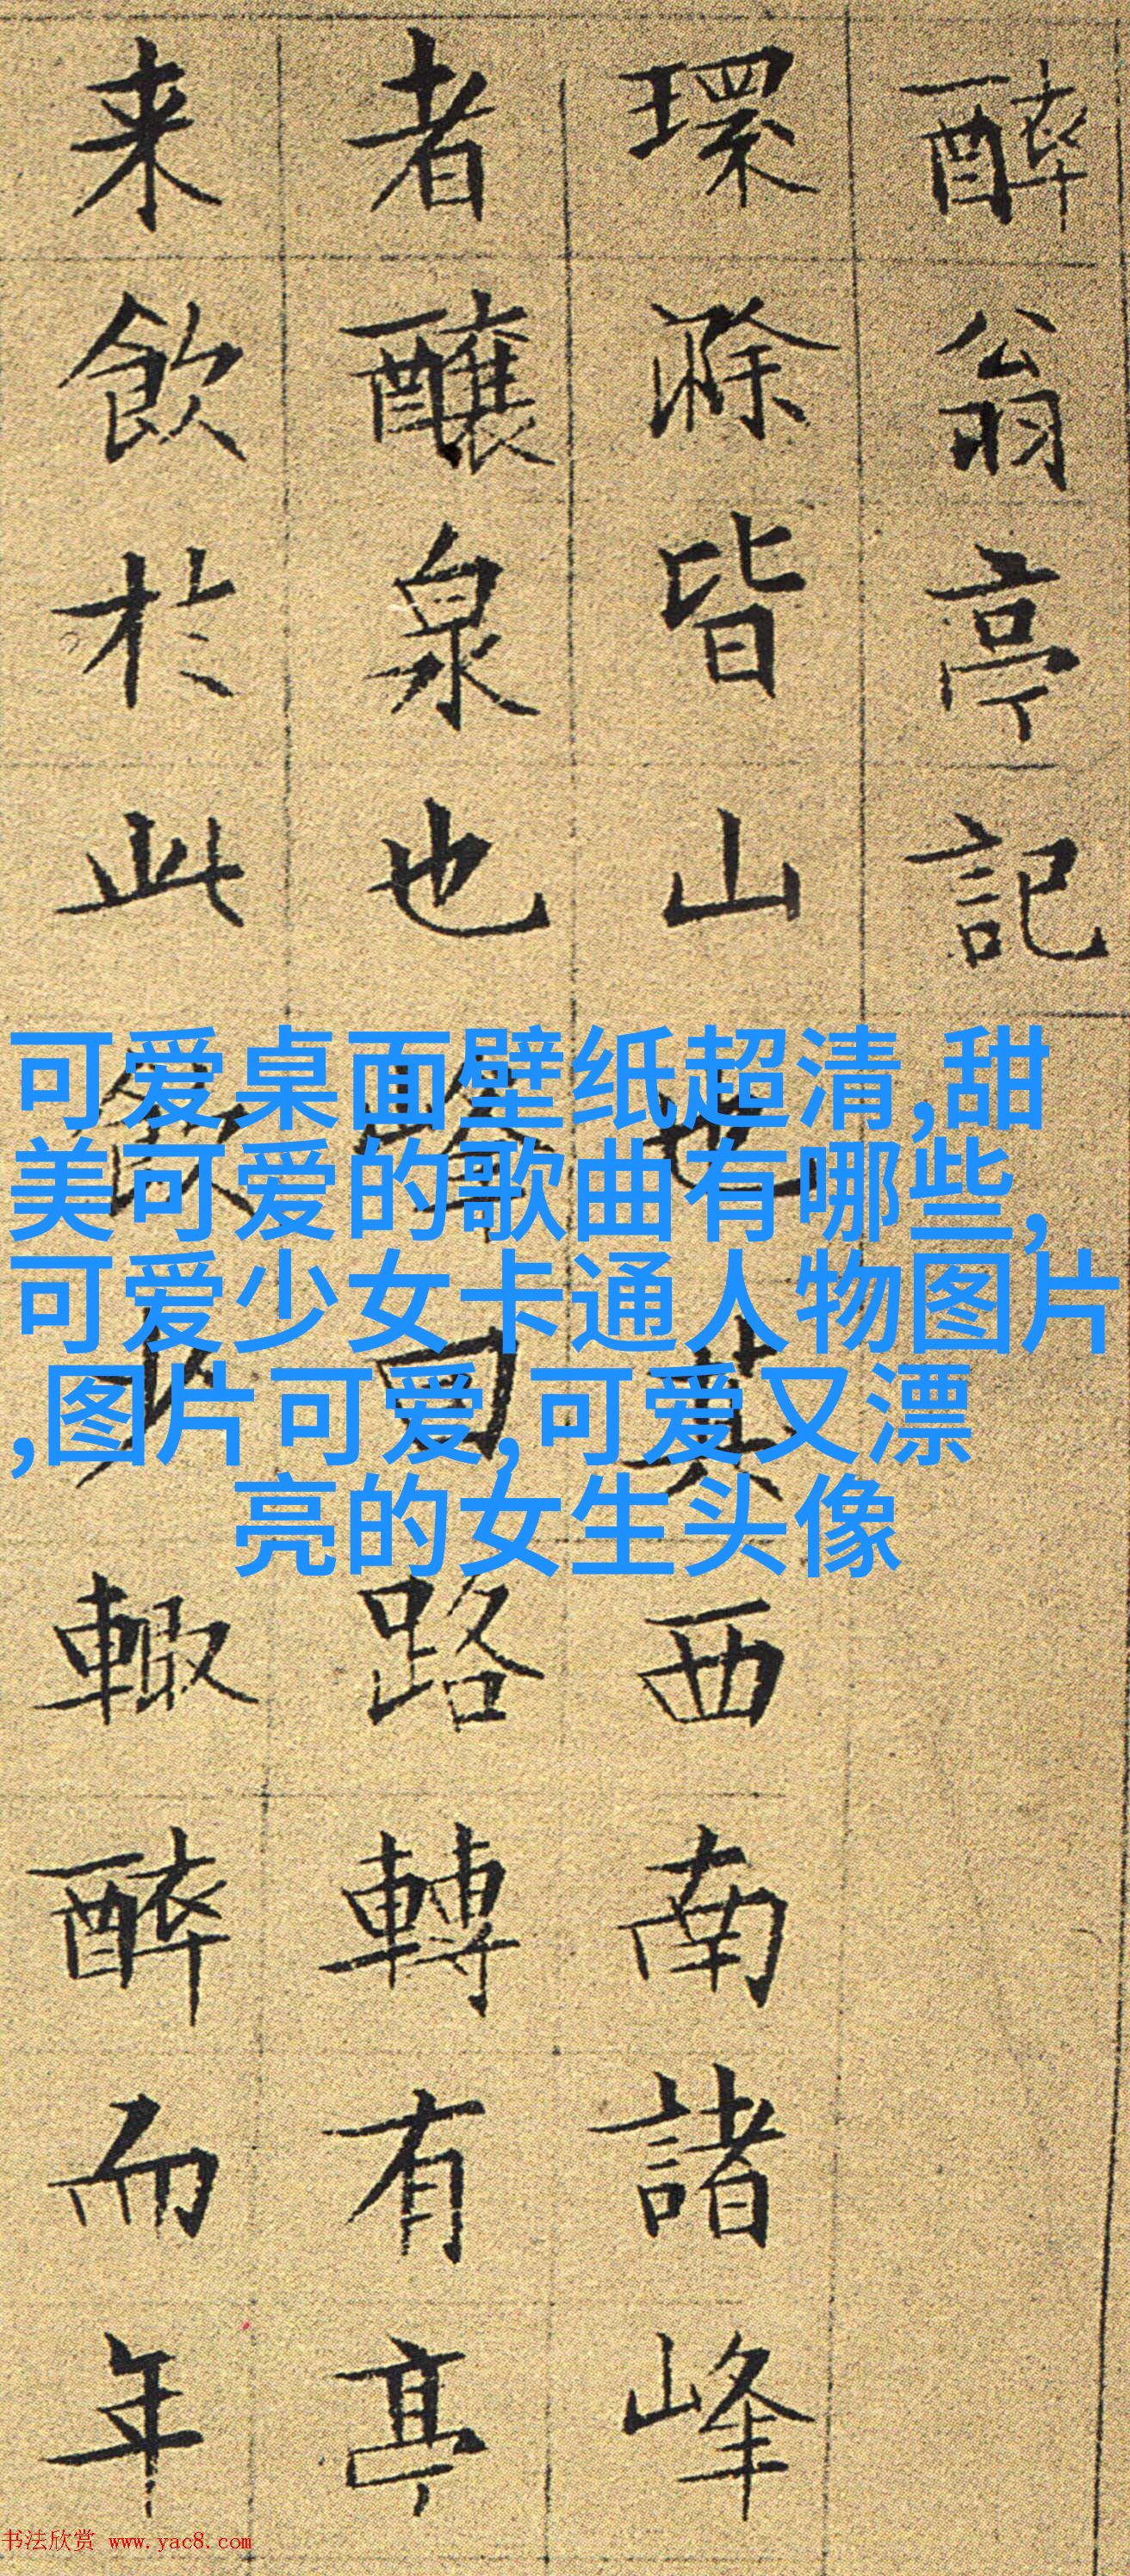 醉翁亭記
環滁皆山也其西南諸峰
者釀泉也回路轉有亭
来飲於此飲少輙醉而年
可爱桌面壁纸超清,甜
美可爱的歌曲有哪些,
可爱少女卡通人物图片
,图片可爱,可爱又漂
亮的女生头像
书法欣赏 www.yac8.com